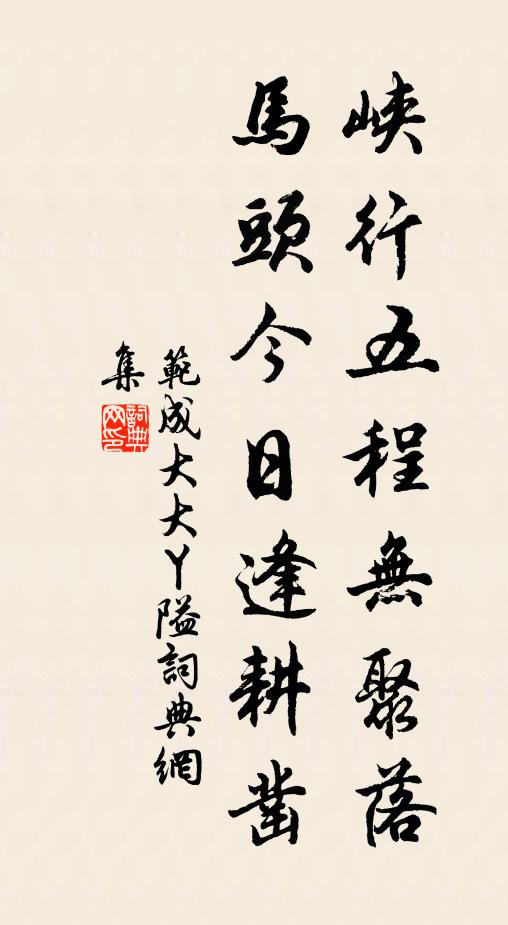 峽行五程無聚落
馬頭今日逢耕鑿
範成大大丫隘詞典網
集
詞典网印